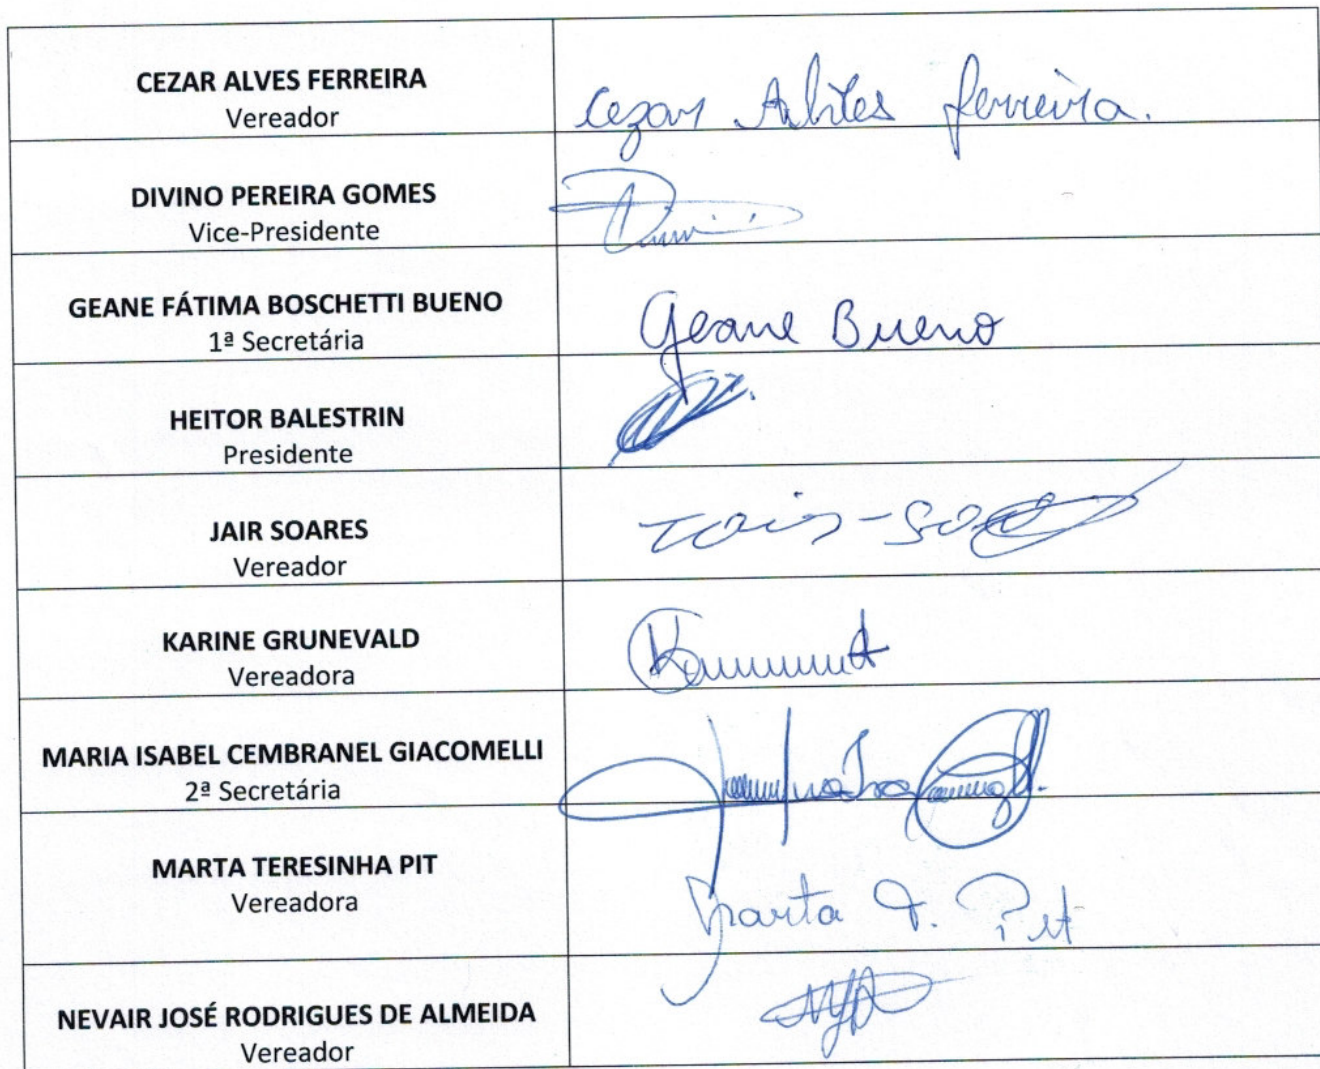 CEZAR ALVES FERREIRA
Vereador
Cezar Ferreira.
DIVINO PEREIRA GOMES
Vice-Presidente
GEANE FÁTIMA BOSCHETTI BUENO
1ª Secretária
Geane Bueno
HEITOR BALESTRIN
Presidente
JAIR SOARES
Vereador
KARINE GRUNEVALD
Vereadora
MARIA ISABEL CEMBRANEL GIACOMELLI
2ª Secretária
MARTA TERESINHA PIT
Vereadora
Marta T. Pit
NEVAIR JOSÉ RODRIGUES DE ALMEIDA
Vereador